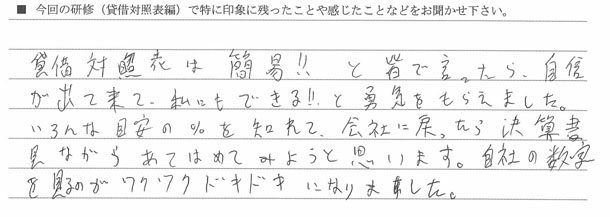 ■ 今回の研修（貸借対照表編）で特に印象に残ったことや感じたことなどをお聞かせ下さい。
貸借対照表は簡易!! と皆で言ったら、自信
が出て来て、私にもできる!! と勇気をもらえました。
いろんな目安の%を知れて、会社に戻ったら決算書
見ながらあてはめてみようと思います。自社の数字
を見るのがワクワクドキドキになりました。